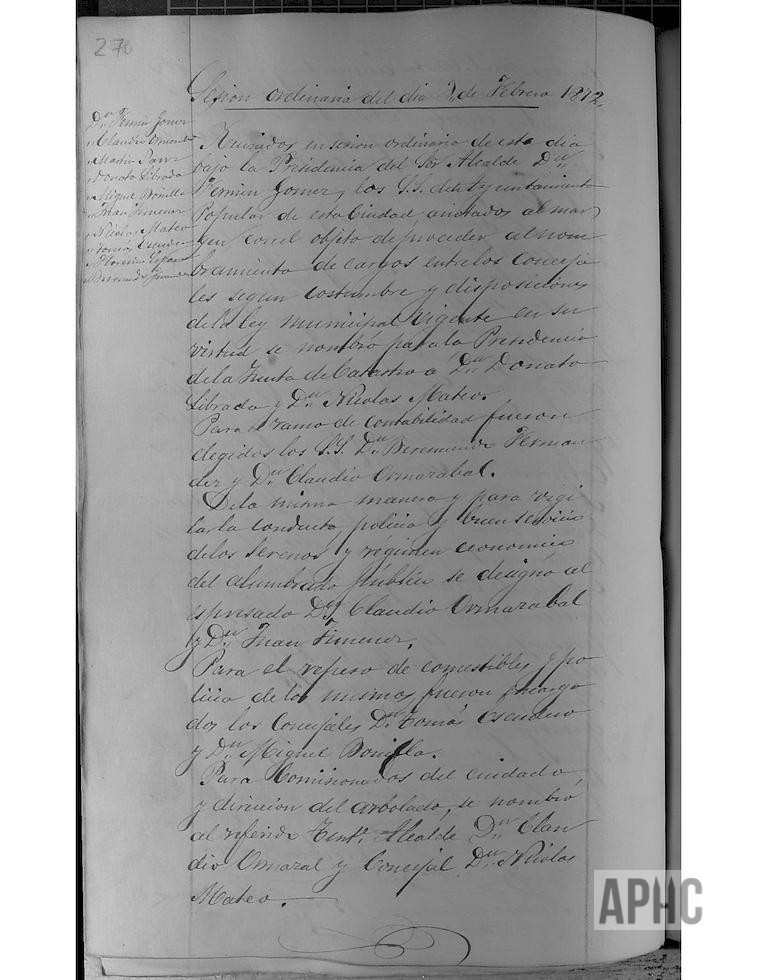 270
Sesion ordinaria del dia 2 de Febrero 1872.
Dn Fermin Gomez
" Claudio Ormazabal
" Martin Sanz
" Donato Librada
" Miguel Bonilla
" Juan Jimenez
" Nicolas Mateo
" Tomás Escudero
" Florencio
" Beremundo
Reunidos en sesion ordinaria de este dia
bajo la Presidencia del Sor Alcalde Dn
Fermin Gomez y los S.S. del Ayuntamiento
Popular de esta Ciudad anotados al mar
gen con el objeto de proceder al nom
bramiento de cargos entre los conceja
les segun costumbre y disposiciones
de la ley municipal vigente en su
virtud se nombró para la Presidencia
de la Junta de Catastro a Dn Donato
Librada y Dn Nicolas Mateo.
Para el ramo de contabilidad fueron
elegidos los S.S. Dn Beremundo Fernan
dez y Dn Claudio Ormazabal.
De la misma manera y para vigi
lar la conducta policia y buen servicio
de los serenos y régimen economico
del alumbrado público se designó al
espresado Dn Claudio Ormazabal
y Dn Juan Jimenez.
Para el repeso de comestibles y po
licia de los mismos fueron encarga
dos los Concejales Dn Tomás Escudero
y Dn Miguel Bonilla.
Para Comisionados del cuidado
y direccion del arbolado, se nombró
al referido Tente Alcalde Dn Clau
dio Ormazal y Concejal Dn Nicolas
Mateo.
APHC